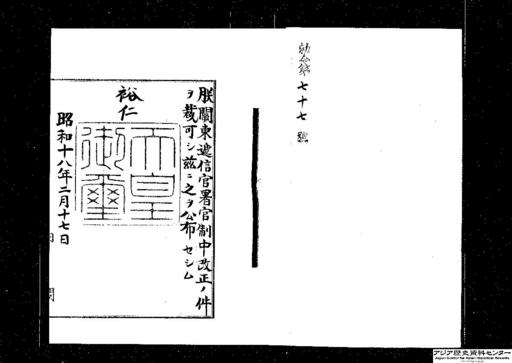 勅令第七十七號
朕關東遞信官署官制中改正ノ件
ヲ裁可シ茲ニ之ヲ公布セシム
裕仁
天皇
御璽
昭和十八年二月十七日
アジア歴史資料センター
Japan Center for Asian Historical Records